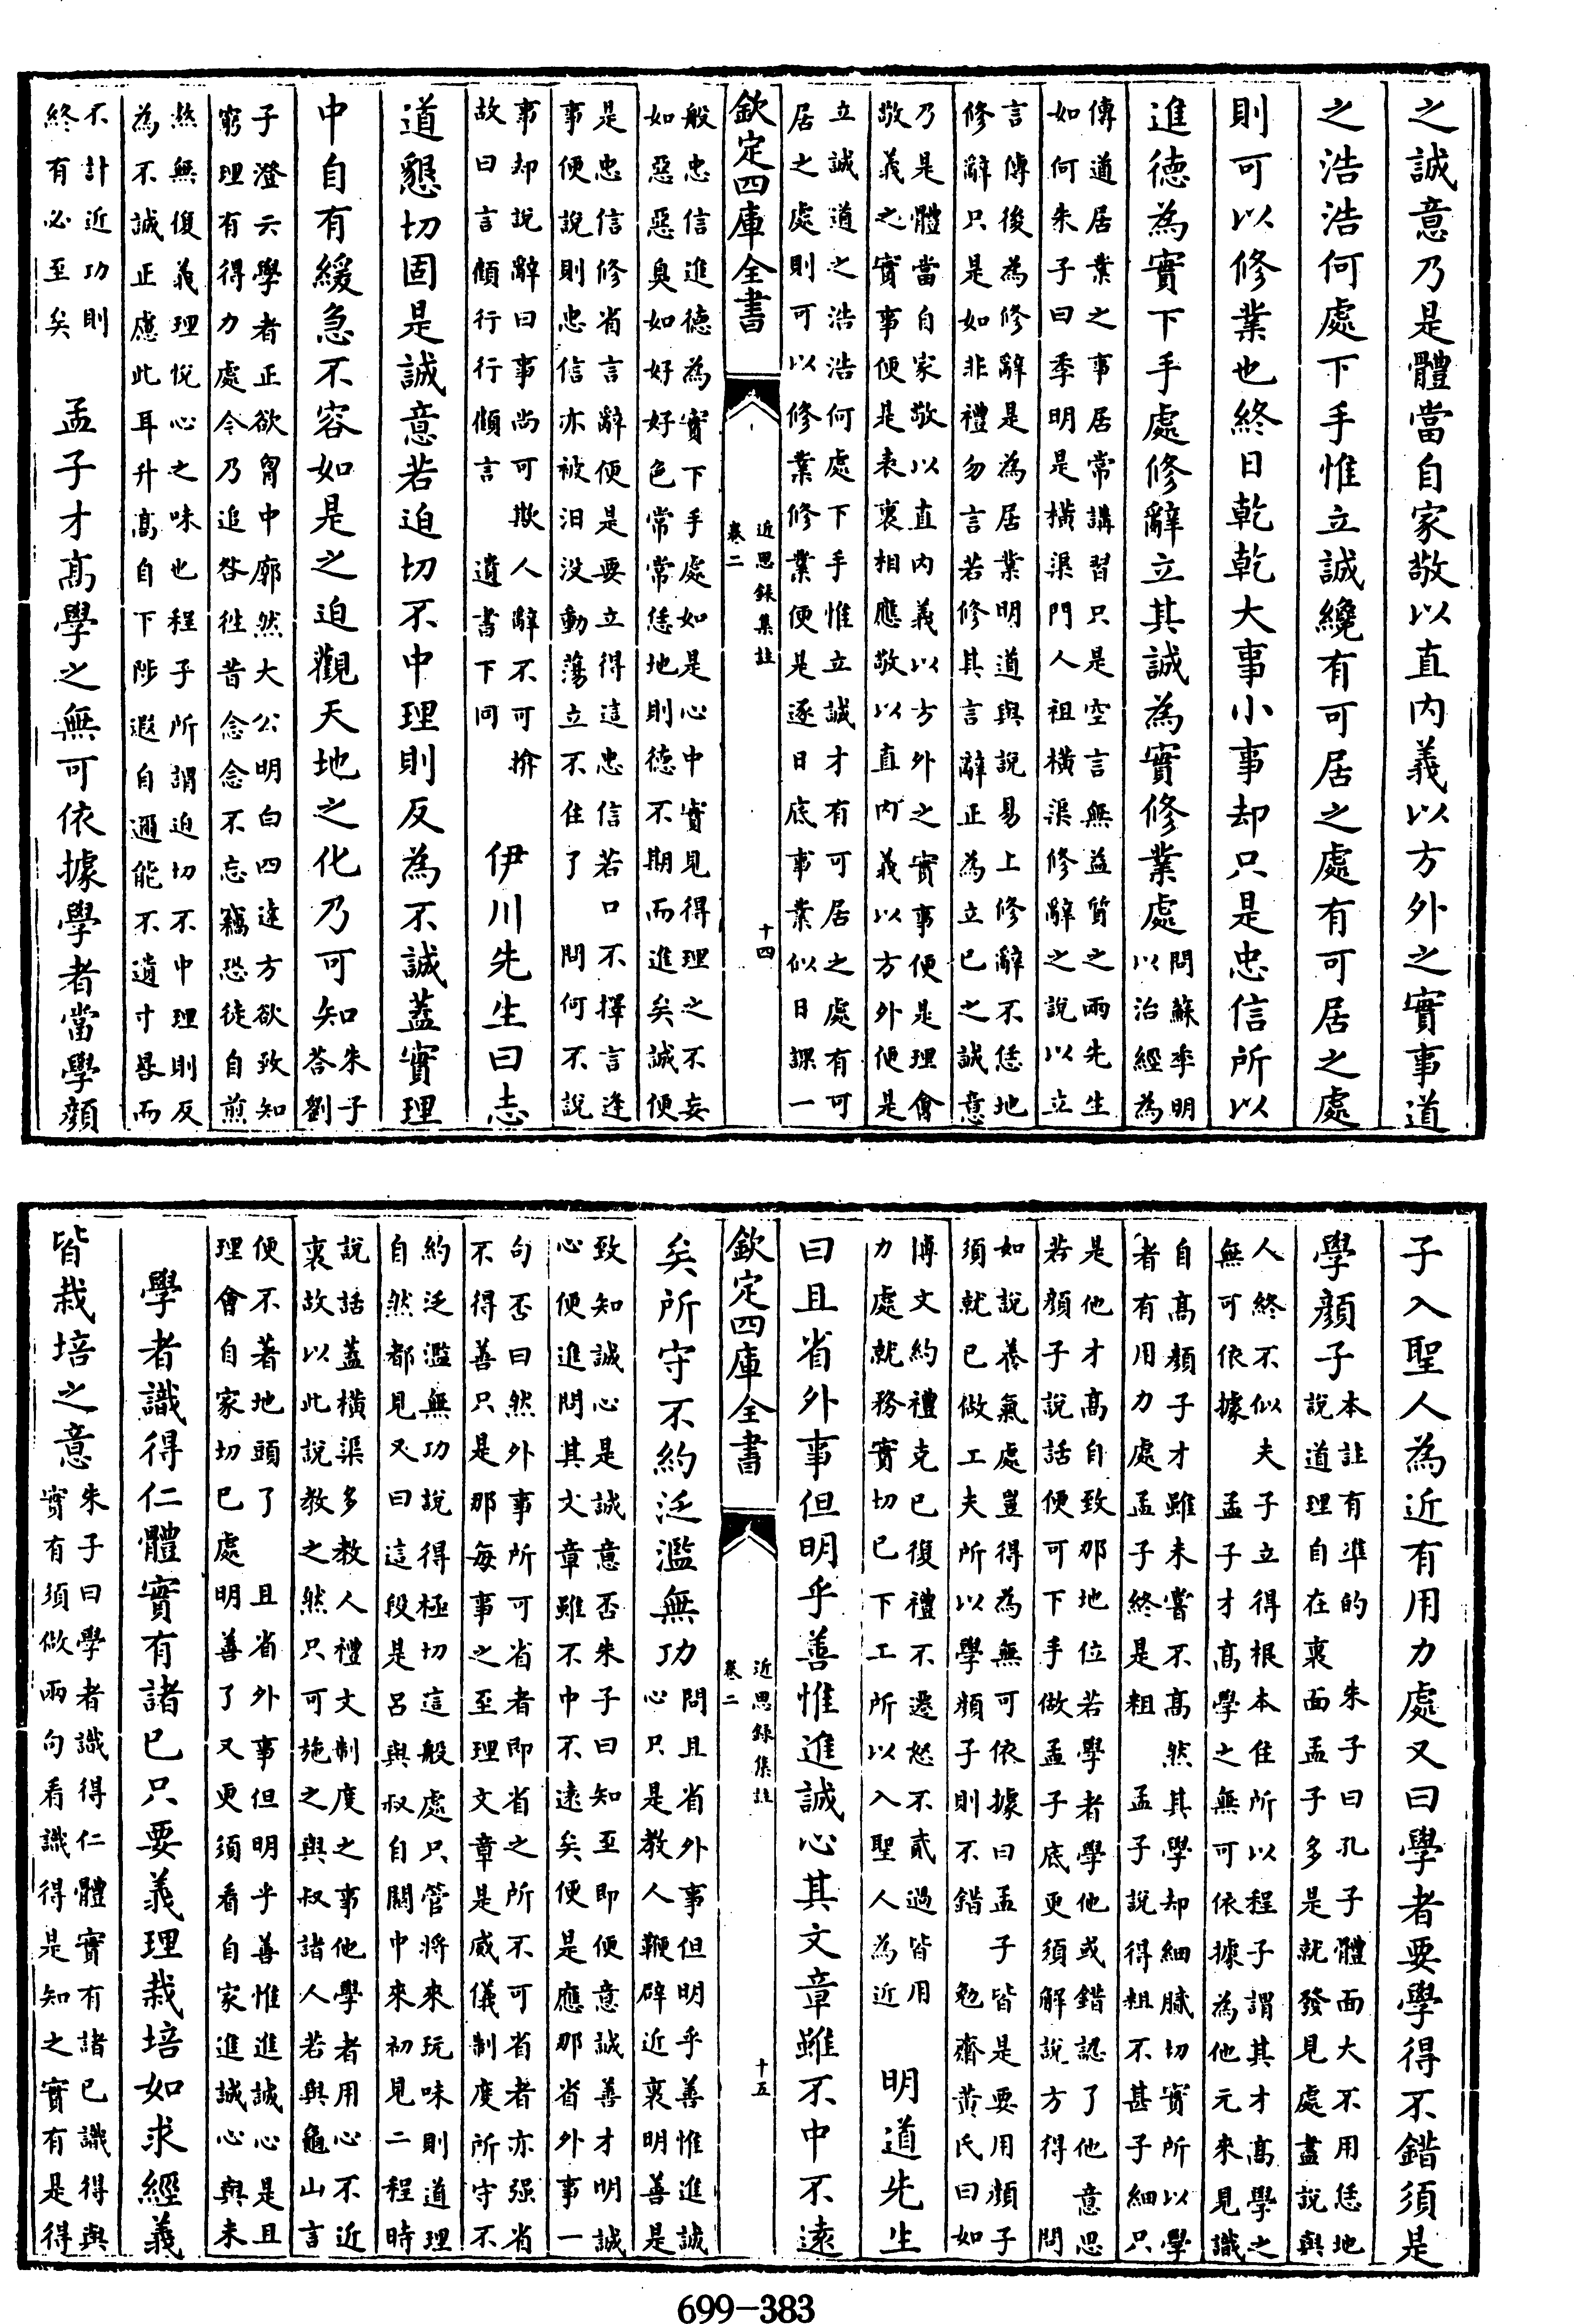 之誠意乃是體當自家敬以直內義以方外之實事道
之浩浩何處下手惟立誠纔有可居之處有可居之處
則可以修業也終日乾乾大事小事却只是忠信所以
進德為實下手處修辭立其誠為實修業處問蘇季明
以治經為
傳道居業之事居常講習只是空言無益質之兩先生
如何朱子曰季明是橫渠門人祖橫渠修辭之說以立
言傳後為修辭是為居業明道與說易上修辭不恁地
修辭只是如非禮勿言若修其言辭正為立己之誠意
乃是體當自家敬以直內義以方外之實事便是理會
敬義之實事便是表裏相應敬以直內義以方外便是
立誠道之浩浩何處下手惟立誠才有可居之處有可
居之處則可以修業修業便是逐日底事業似日課一
欽定四庫全書
近思錄集註
卷二
十四
般忠信進德為實下手處如是心中實見得理之不妄
如惡惡臭如好好色常常恁地則德不期而進矣誠便
是忠信修省言辭便是要立得這忠信若口不擇言逢
事便說則忠信亦被汩沒動蕩立不住了　問何不說
事却說辭曰事尚可欺人辭不可揜
故曰言傾行行傾言　遺書下同
伊川先生曰志
道懇切固是誠意若迫切不中理則反為不誠蓋實理
中自有緩急不容如是之迫觀天地之化乃可知朱子
答劉
子澄云學者正欲胷中廓然大公明白四達方欲致知
窮理有得力處今乃追咎徃昔念念不忘竊恐徒自煎
熬無復義理悅心之味也程子所謂迫切不中理則反
為不誠正慮此耳升高自下陟遐自邇能不遺寸晷而
不計近功則
終有必至矣
孟子才高學之無可依據學者當學顏
子入聖人為近有用力處又曰學者要學得不錯須是
學顏子本註有準的　朱子曰孔子體面大不用恁地
說道理自在裏面孟子多是就發見處盡說與
人終不似夫子立得根本住所以程子謂其才高學之
無可依據　孟子才高學之無可依據為他元來見識
自高顏子才雖未嘗不高然其學却細膩切實所以學
者有用力處孟子終是粗　孟子說得粗不甚子細只
是他才高自致那地位若學者學他或錯認了他意思
若顏子說話便可下手做孟子底更須解說方得　問
如說養氣處豈得為無可依據曰孟子皆是要用顏子
須就己做工夫所以學顏子則不錯　勉齋黃氏曰如
博文約禮克己復禮不遷怒不貳過皆用
力處就務實切己下工所以入聖人為近
明道先生
曰且省外事但明乎善惟進誠心其文章雖不中不遠
欽定四庫全書
近思錄集註
卷二
十五
矣所守不約泛濫無功問且省外事但明乎善惟進誠
心只是教人鞭辟近裏明善是
致知誠心是誠意否朱子曰知至即便意誠善才明誠
心便進問其文章雖不中不遠矣便是應那省外事一
句否曰然外事所可省者即省之所不可省者亦强省
不得善只是那每事之至理文章是威儀制度所守不
約泛濫無功說得極切這般處只管將來玩味則道理
自然都見又曰這段是呂與叔自關中來初見二程時
說話蓋橫渠多教人禮文制度之事他學者用心不近
裏故以此說教之然只可施之與叔諸人若與龜山言
便不著地頭了　且省外事但明乎善惟進誠心是且
理會自家切己處明善了又更須看自家進誠心與未
學者識得仁體實有諸己只要義理栽培如求經義
皆栽培之意朱子曰學者識得仁體實有諸己識得與
實有須做兩句看識得是知之實有是得
699-383